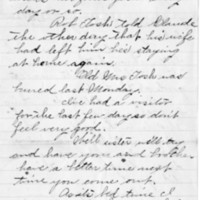 day on it.
Rob Tosh told Claude
the other day that his wife
had left him his staying
at home again.
Old Mrs Tosh was
buried last Monday.
I've had a visitor
for the last few days so don't
feel very good.
Well sister will try
and have you and brother
have a better time next
time you come out.
As its bed time I